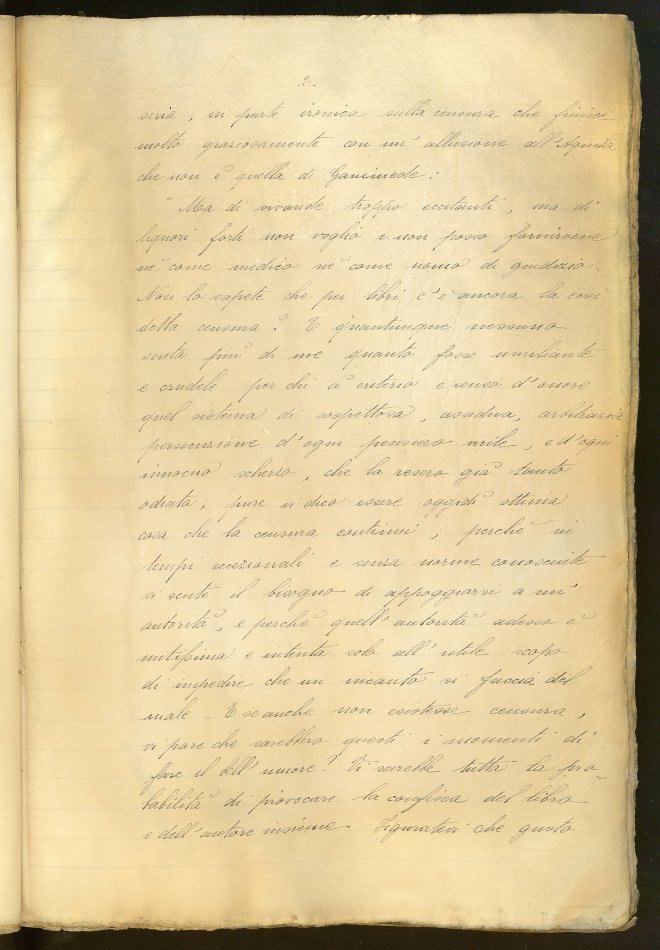 seria, in parte ironica sulla censura che finisce
molto graziosamente con un' allusione all'Aquila
che non è quella di Ganimede:
"Ma di vivande troppo eccitanti, ma di
liquori forti non voglio e non posso fornirvene
nè come medico nè come uomo di giudizio.
Non lo sapete che pei libri c'è ancora la così
detta censura? E quantunque nessuno
senta più di me quanto fosse umiliante
e crudele per chi à criterio e senso d'onore
quel sistema di sospettosa, assidua, arbitraria
persecuzione d'ogni pensiero virile, e d'ogni
innocuo scherzo, che la resero già tanto
odiata; pure vi dico essere oggidì ottima
cosa che la censura continui; perchè in
tempi eccezionali e senza norme conosciute
si sente il bisogno di appoggiarsi a un'
autorità, e perchè quell'autorità adesso è
mitissima e intenta solo all'utile scopo
di impedire che un incauto si faccia del
male. E se anche non esistesse censura,
vi pare che sarebbero questi i momenti di
fare il bell'umore? Vi sarebbe tutta la pro-
babilità di provocare la confisca del libro
e dell'autore insieme. Figuratevi che gusto